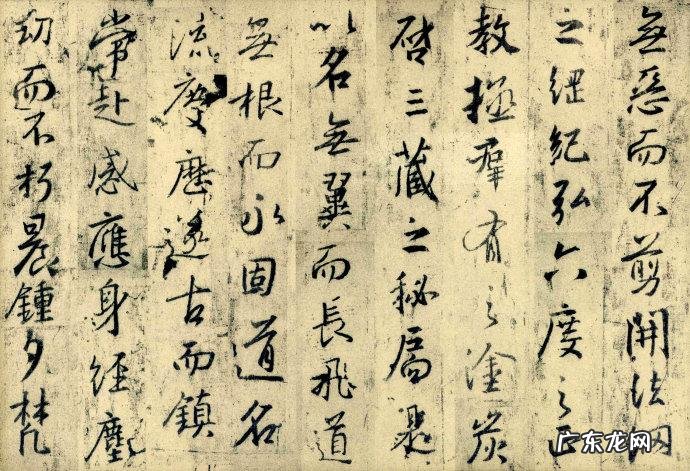 無惡而不剪開法網
之綱紀弘六度之正
教拯群有之塗炭
啓三藏之秘扃是
以名無翼而長飛道
無根而永固道名
流慶歷遂古而鎮
常赴感應身經塵
劫而不朽晨鍾夕梵
广东龙网